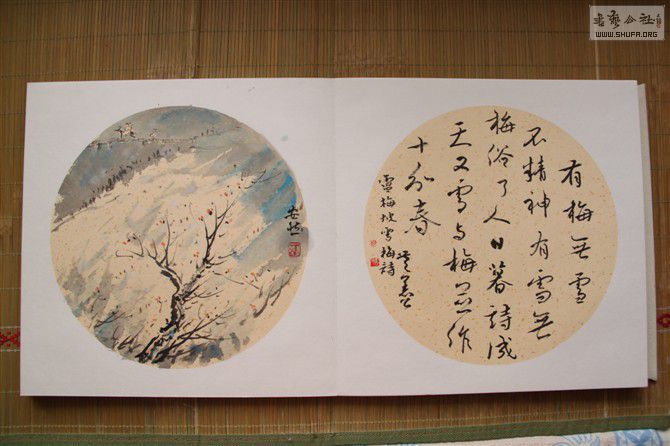 有梅無雪
不精神有雪無
梅俗了人日暮詩成
天又雪与梅並作
十分春
梅坡雪梅詩
書藝公社
WWW.SHUFA.ORG